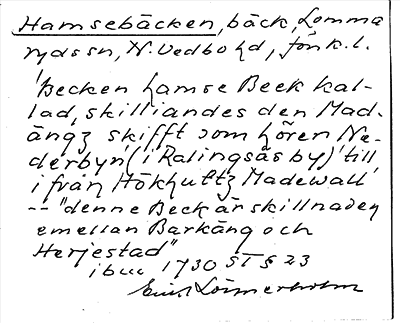 Hamsebäcken, bäck, Lomma
rydssn, N. Vedbo hd, Jönk.l.
'Becken hamse Beck kal-
lad, skilliandes den Mad-
ängz skifft som hören Ne-
derbyn (i Ralingsås by) till'
i från Hökhultz Madewall'
-- "denne Beck är skillnaden
emellan Barkäng och
Herjestad"
1730 ST § 23